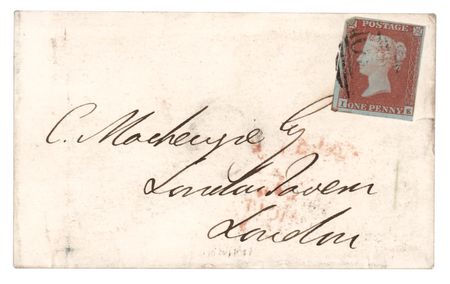 POSTAGE
ONE PENNY
C. Mackenzie Esq
London Tavern
London